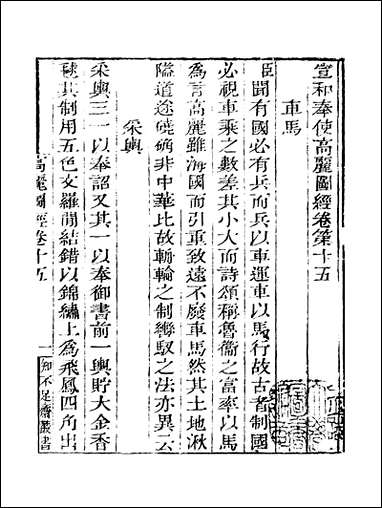 宣和奉使高麗圖經卷第十五
車馬
臣聞有國必有兵而兵以車運車以馬行故古者制國
必視車乘之數差其小大而詩頌稱魯衞之富率以馬
為言高麗雖海國而引重致遠不廢車馬然其土地湫
隘道途磽确非中華比故輈輪之制轡馭之法亦異云
采輿
采輿三一以奉詔又其一以奉御書前一輿貯大金香
毬其制用五色文羅間結錯以錦繡上為飛鳳四角出
高麗圖經卷十五
一
知不足齋叢書